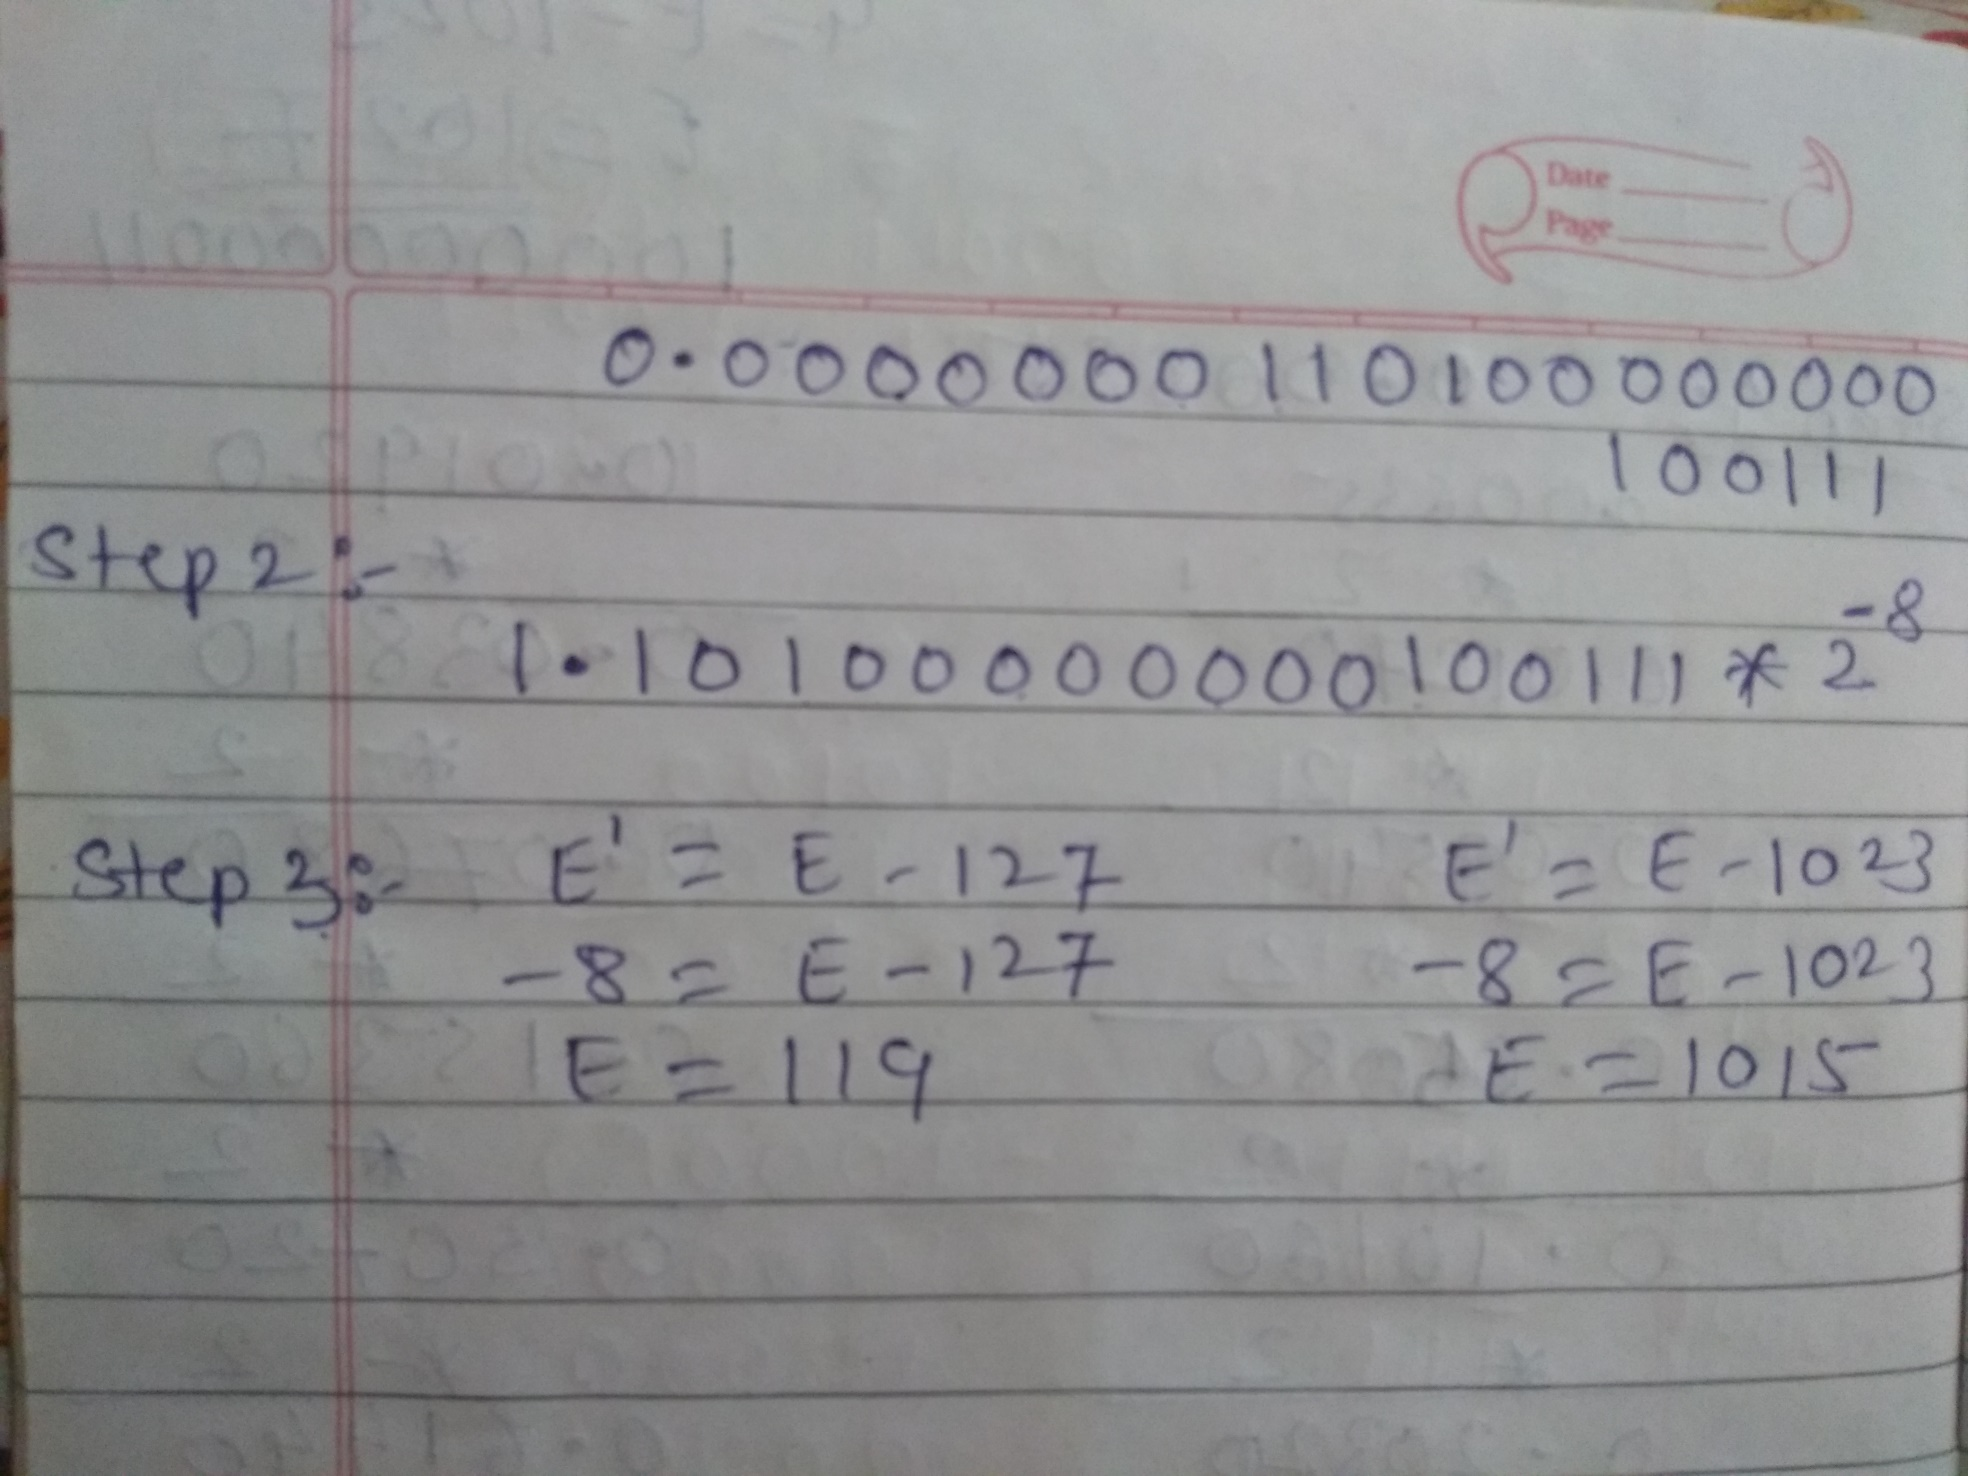 Date
Page
0.0000000110100000000
100111
Step 2 :-
1.10100000000100111 * 2^-8
Step 3:- E' = E - 127 E' = E - 1023
-8 = E - 127 -8 = E - 1023
E = 119 E = 1015